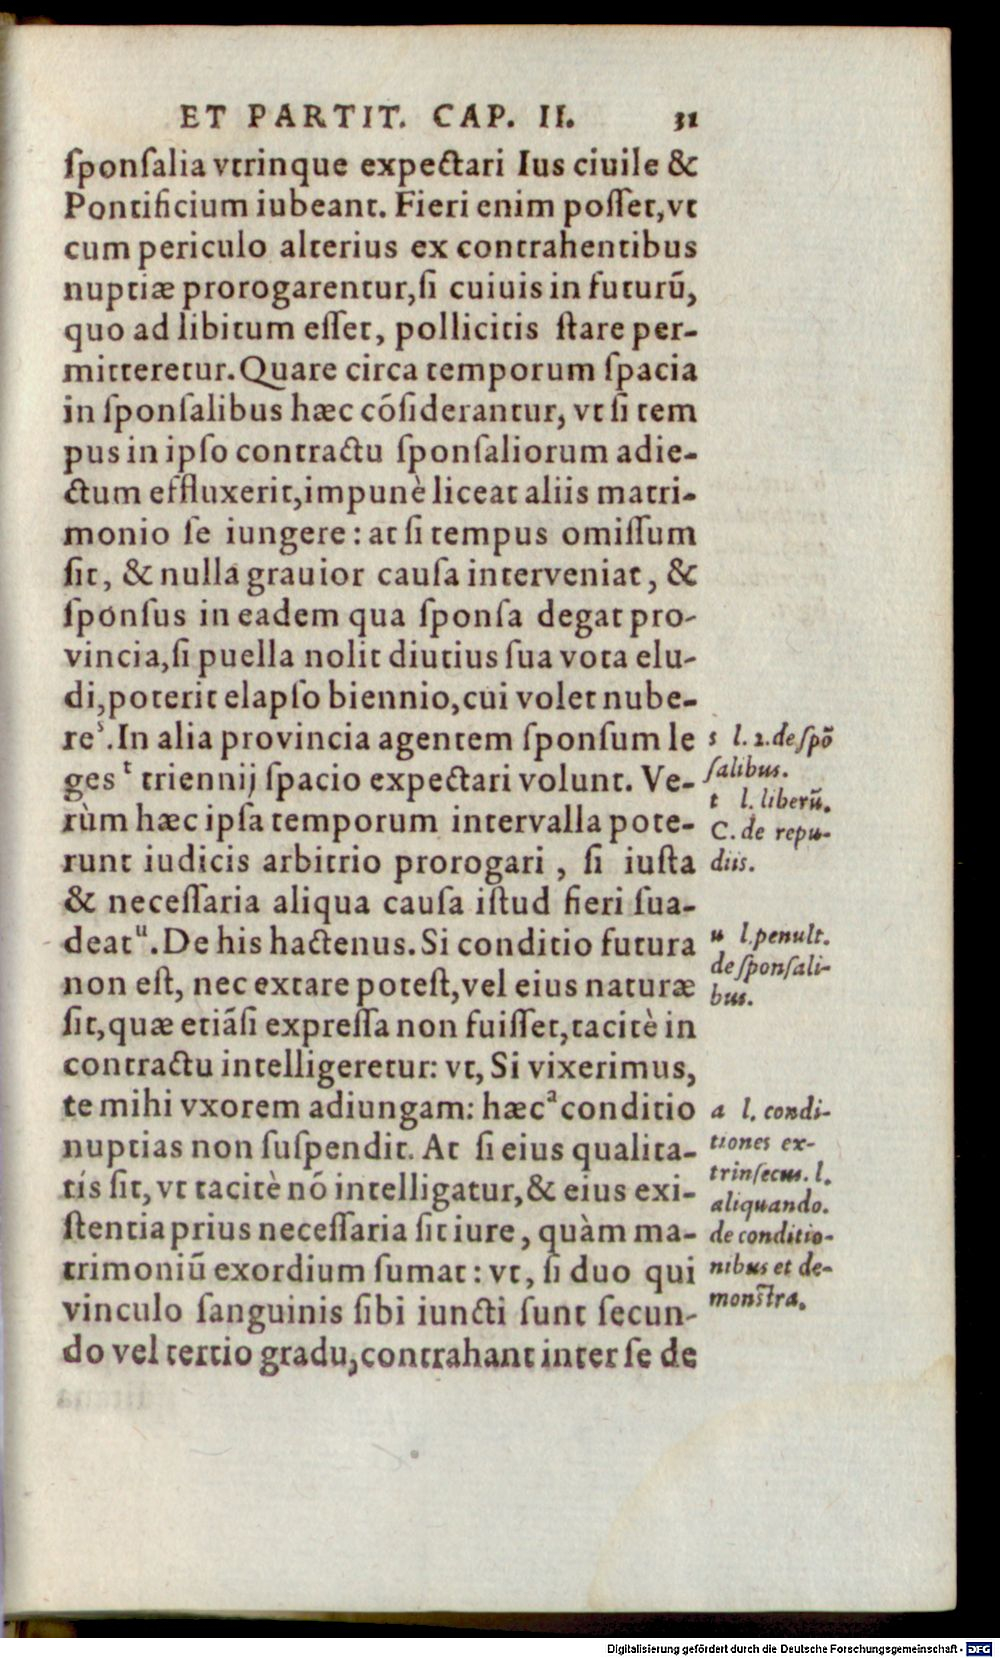 ET PARTIT. CAP. II. 31
ſponſalia vtrinque expectari Ius ciuile &
Pontificium iubeant. Fieri enim poſſet, vt
cum periculo alterius ex contrahentibus
nuptiæ prorogarentur, ſi cuiuis in futurũ,
quo ad libitum eſſet, pollicitis ſtare per-
mitteretur. Quare circa temporum ſpacia
in ſponſalibus hæc cõſiderantur, vt ſi tem
pus in ipſo contractu ſponſaliorum adie-
ctum effluxerit, impunè liceat aliis matri-
monio ſe iungere: at ſi tempus omiſſum
ſit, & nulla grauior cauſa interveniat, &
ſponſus in eadem qua ſponſa degat pro-
vincia, ſi puella nolit diutius ſua vota elu-
di, poterit elapſo biennio, cui volet nube-
re ˢ. In alia provincia agentem ſponſum le
ges ᵗ triennij ſpacio expectari volunt. Ve-
rùm hæc ipſa temporum intervalla pote-
runt iudicis arbitrio prorogari, ſi iuſta
& neceſſaria aliqua cauſa iſtud fieri ſua-
deat ᵘ. De his hactenus. Si conditio futura
non eſt, nec extare poteſt, vel eius naturæ
ſit, quæ etiãſi expreſſa non fuiſſet, tacitè in
contractu intelligeretur: vt, Si vixerimus,
te mihi vxorem adiungam: hæc ᵃ conditio
nuptias non ſuſpendit. At ſi eius qualita-
tis ſit, vt tacitè nõ intelligatur, & eius exi-
ſtentia prius neceſſaria ſit iure, quàm ma-
trimoniũ exordium ſumat: vt, ſi duo qui
vinculo ſanguinis ſibi iuncti ſunt ſecun-
do vel tertio gradu, contrahant inter ſe de
s l. 2. de ſpõ
ſalibus.
t l. liberũ.
C. de repu-
diis.
u l. penult.
de ſponſali-
bus.
a l. condi-
tiones ex-
trinſecus. l.
aliquando.
de conditio-
nibus et de-
monſtra.
Digitalisierung gefördert durch die Deutsche Forschungsgemeinschaft - DFG